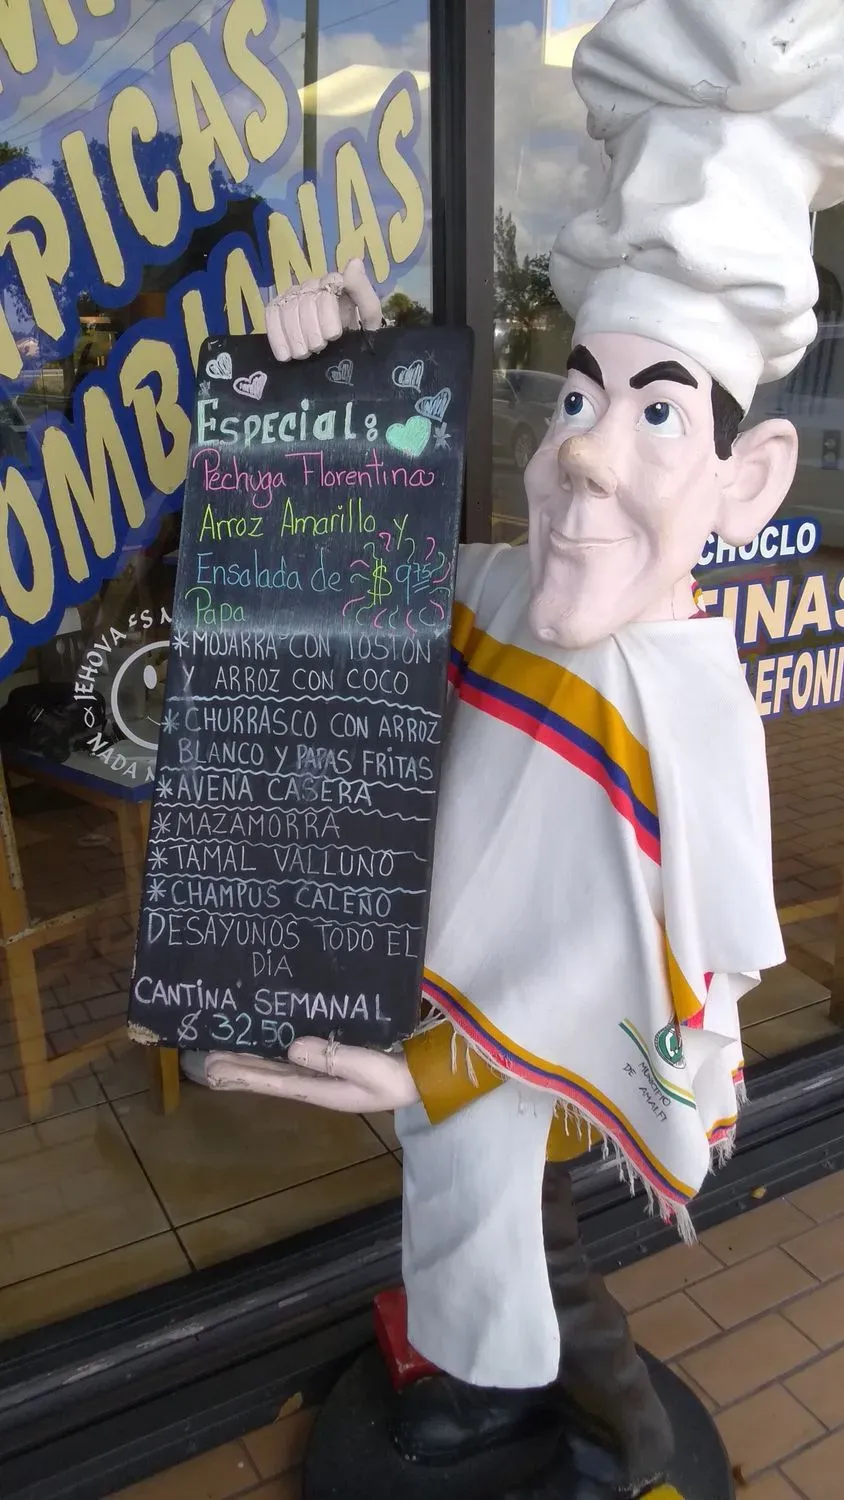 PICAS
OMBIANAS
Especial:
Pechuga Florentina.
Arroz Amarillo y
Ensalada de $ 9.75
Papa
*MOJARRA CON TOSTON
Y ARROZ CON COCO
*CHURRASCO CON ARROZ
BLANCO Y PAPAS FRITAS
*AVENA CASERA
*MAZAMORRA
*TAMAL VALLUNO
*CHAMPUS CALEÑO
DESAYUNOS TODO EL
DIA
CANTINA SEMANAL
$ 32.50
JEHOVA ES M
NADA
CHOCLO
INAS
LEFONI
MUNICIPIO
DE AMALFI